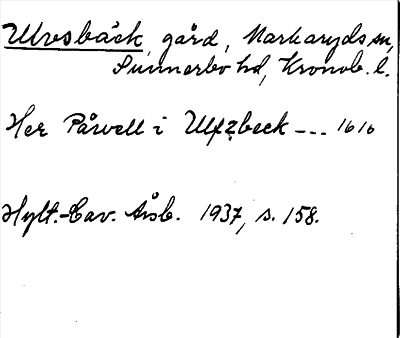 Ulvsbäck, gård, Markaryds sn,
Sunnerbo hd, Kronob. l.
Her Påvell i Ulfzbeck --- 1616
Hylt.-Cav. Årsb. 1937, s. 158.